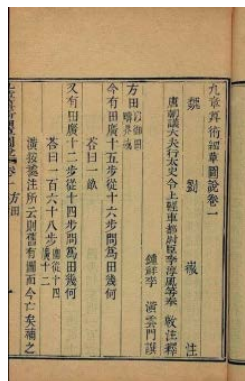 九章算術細草圖說卷一
魏　劉　徽　注
唐朝議大夫行太史令上輕車都尉臣李淳風等奉　敕注釋
鍾祥李　潢雲門譔
方田以御田疇界域
今有田廣十五步從十六步問爲田幾何
荅曰一畝
又有田廣十二步從十四步問爲田幾何
荅曰一百六十八步圖從十四廣十二
潢按據注所云則舊有圖而今亡矣補之
卷一　方田